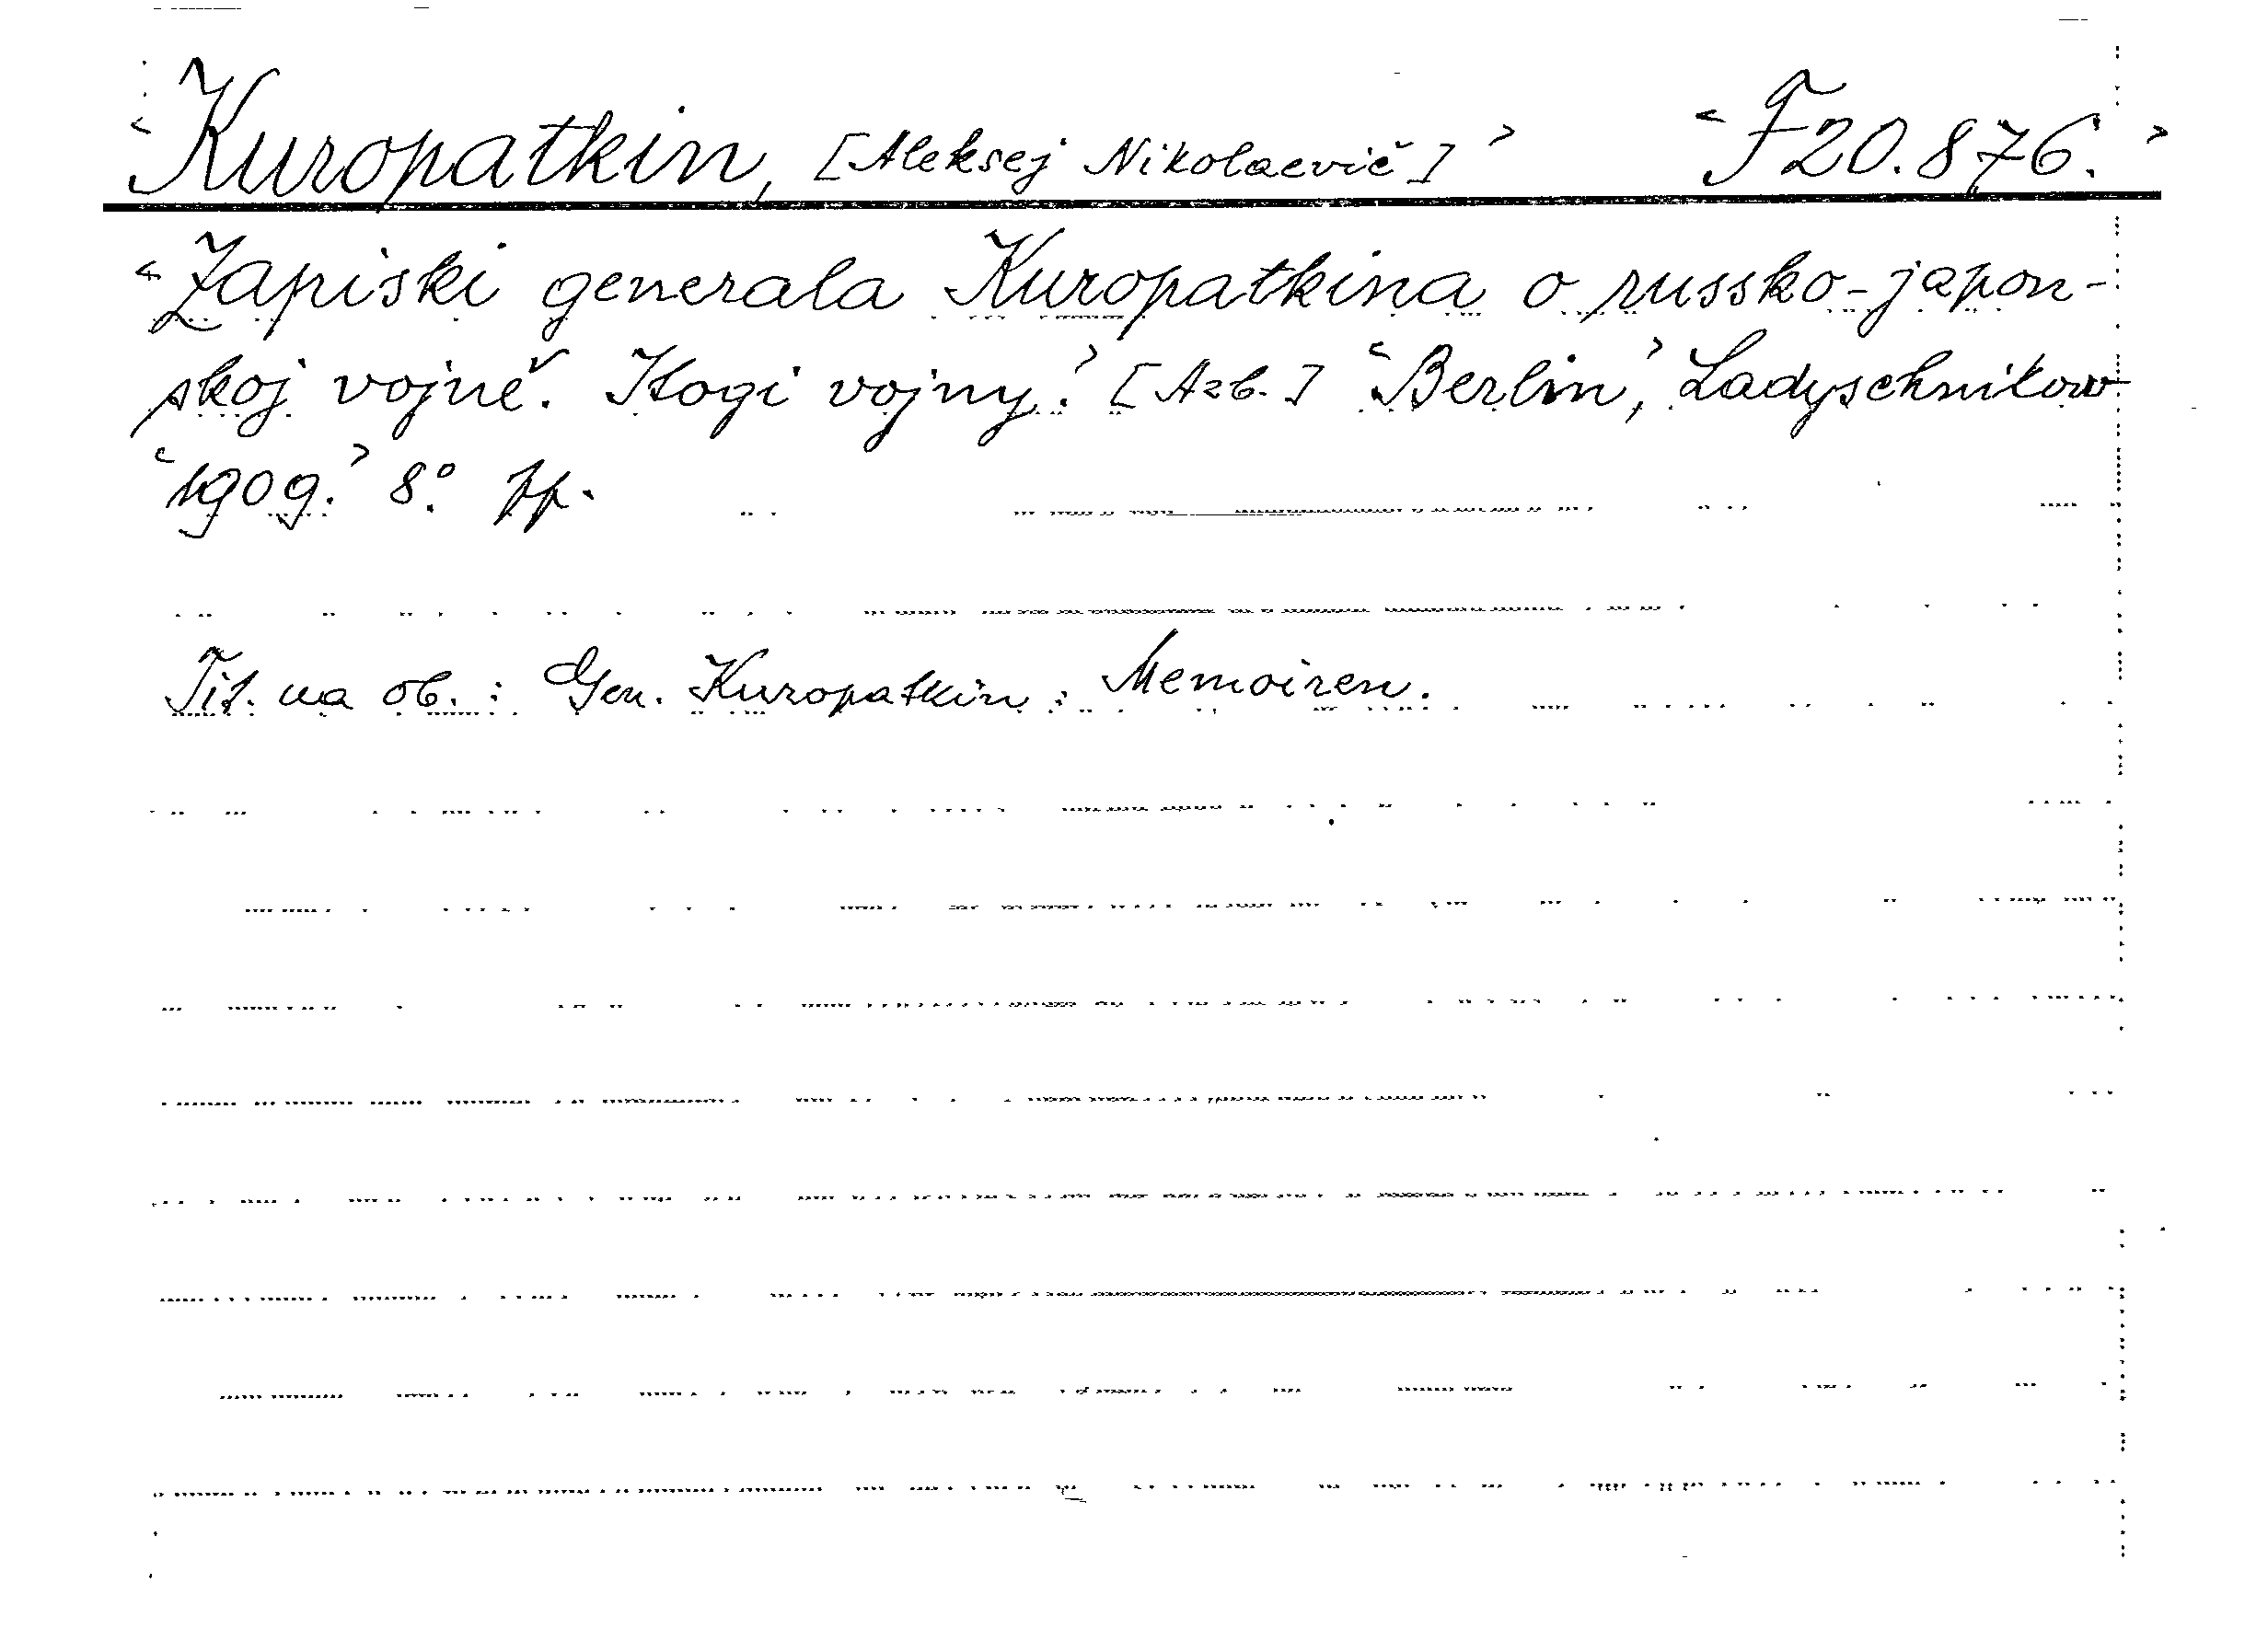 ‹Kuropatkin, [Aleksej Nikolaevič]› ‹F20.876.›
‹Zapiski generala Kuropatkina o russko-japon-
skoj vojně. Itogi vojny.› [Azb.] ‹Berlin›, Ladyschnikow
‹1909.› 8°.
Tit. na ob.: Gen. Kuropatkin: Memoiren.